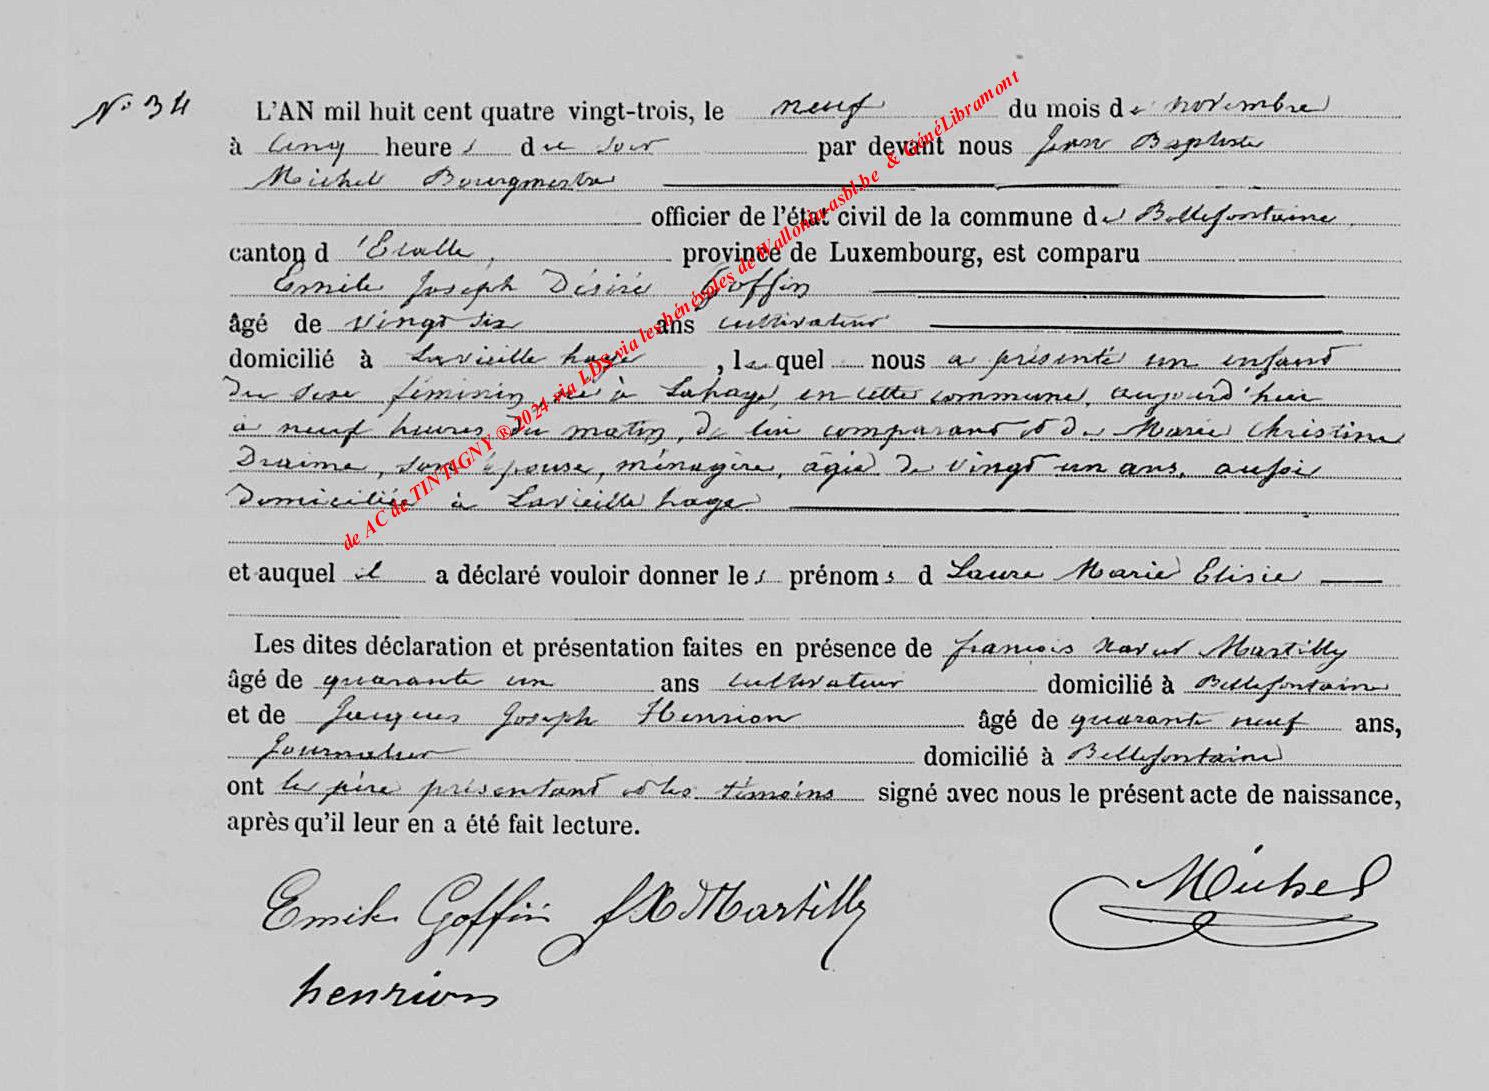 N° 34
L'AN mil huit cent quatre vingt-trois, le neuf du mois de novembre
à cinq heures du soir par devant nous Jean Baptiste
Michel Bourgmestre
officier de l'état civil de la commune de Bellefontaine,
canton d'Etalle, province de Luxembourg, est comparu
Emile Joseph Désiré Goffin
âgé de vingt six ans cultivateur
domicilié à Lavieille haye, lequel nous a présenté un enfant
du sexe féminin, né à Lahaye, en cette commune, aujourd'hui
à neuf heures du matin, de lui comparant et de Marie Christine
Draime, son épouse, ménagère, âgée de vingt un ans, aussi
domiciliée à Lavieille haye
et auquel il a déclaré vouloir donner les prénoms d Laure Marie Elisie
Les dites déclaration et présentation faites en présence de françois Xavier Martilly
âgé de quarante un ans cultivateur domicilié à Bellefontaine
et de Jacques Joseph Henrion âgé de quarante neuf ans,
Journalier domicilié à Bellefontaine
ont le père présentant et les témoins signé avec nous le présent acte de naissance,
après qu'il leur en a été fait lecture.
Emile Goffin fX Martilly Michel
henrion
de AC de TINTIGNY ® 2024 via LDS via les bénévoles de Wallonia-asbl.be & GénéLibramont